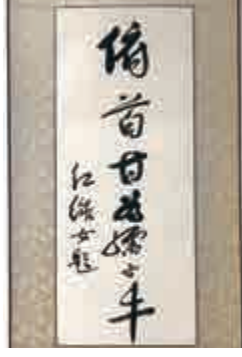 俯首甘为孺子牛
红线女题